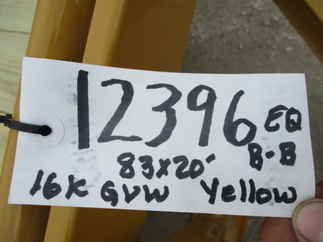 12396 EQ
83x20' B-B
16K GVW Yellow